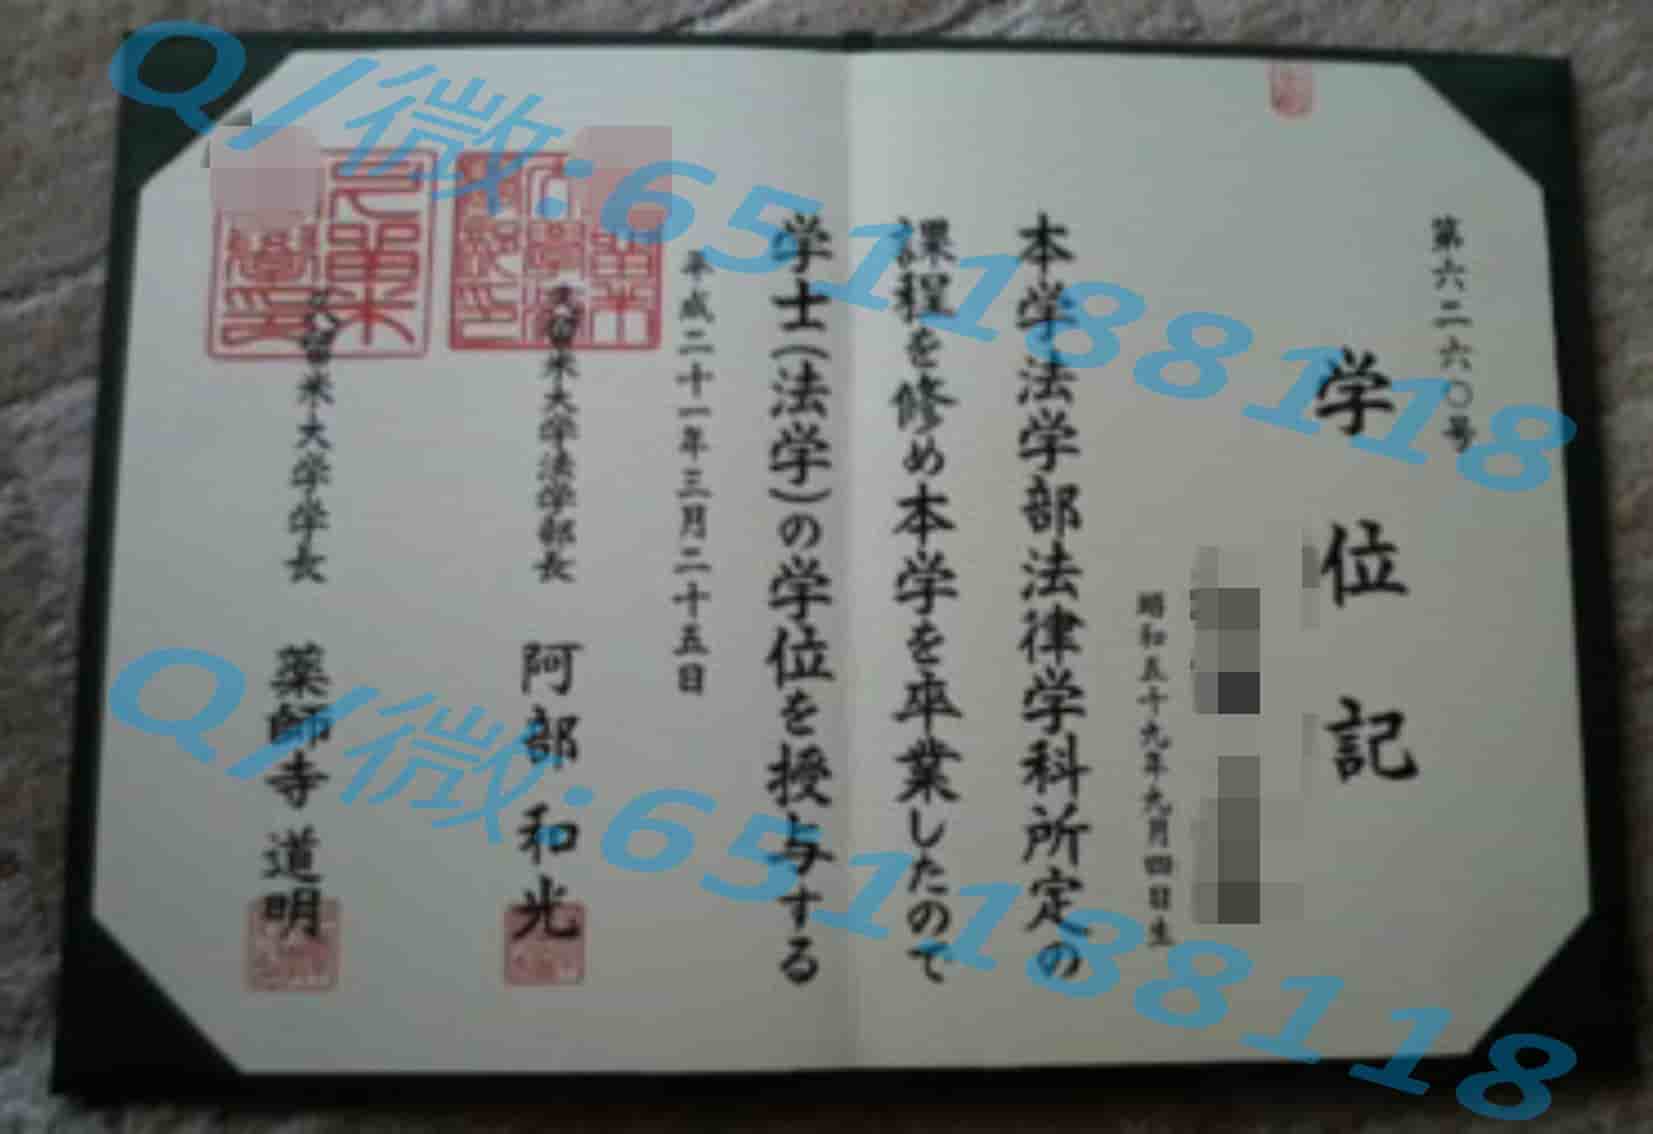 第六二六〇号
学位記
昭和五十九年九月四日生
本学法学部法律学科所定の
課程を修め本学を卒業したので
学士(法学)の学位を授与する
平成二十一年三月二十五日
久留米大学法学部長 阿部和光
久留米大学学長 薬師寺道明
Q/微:651188118
Q/微:651188118